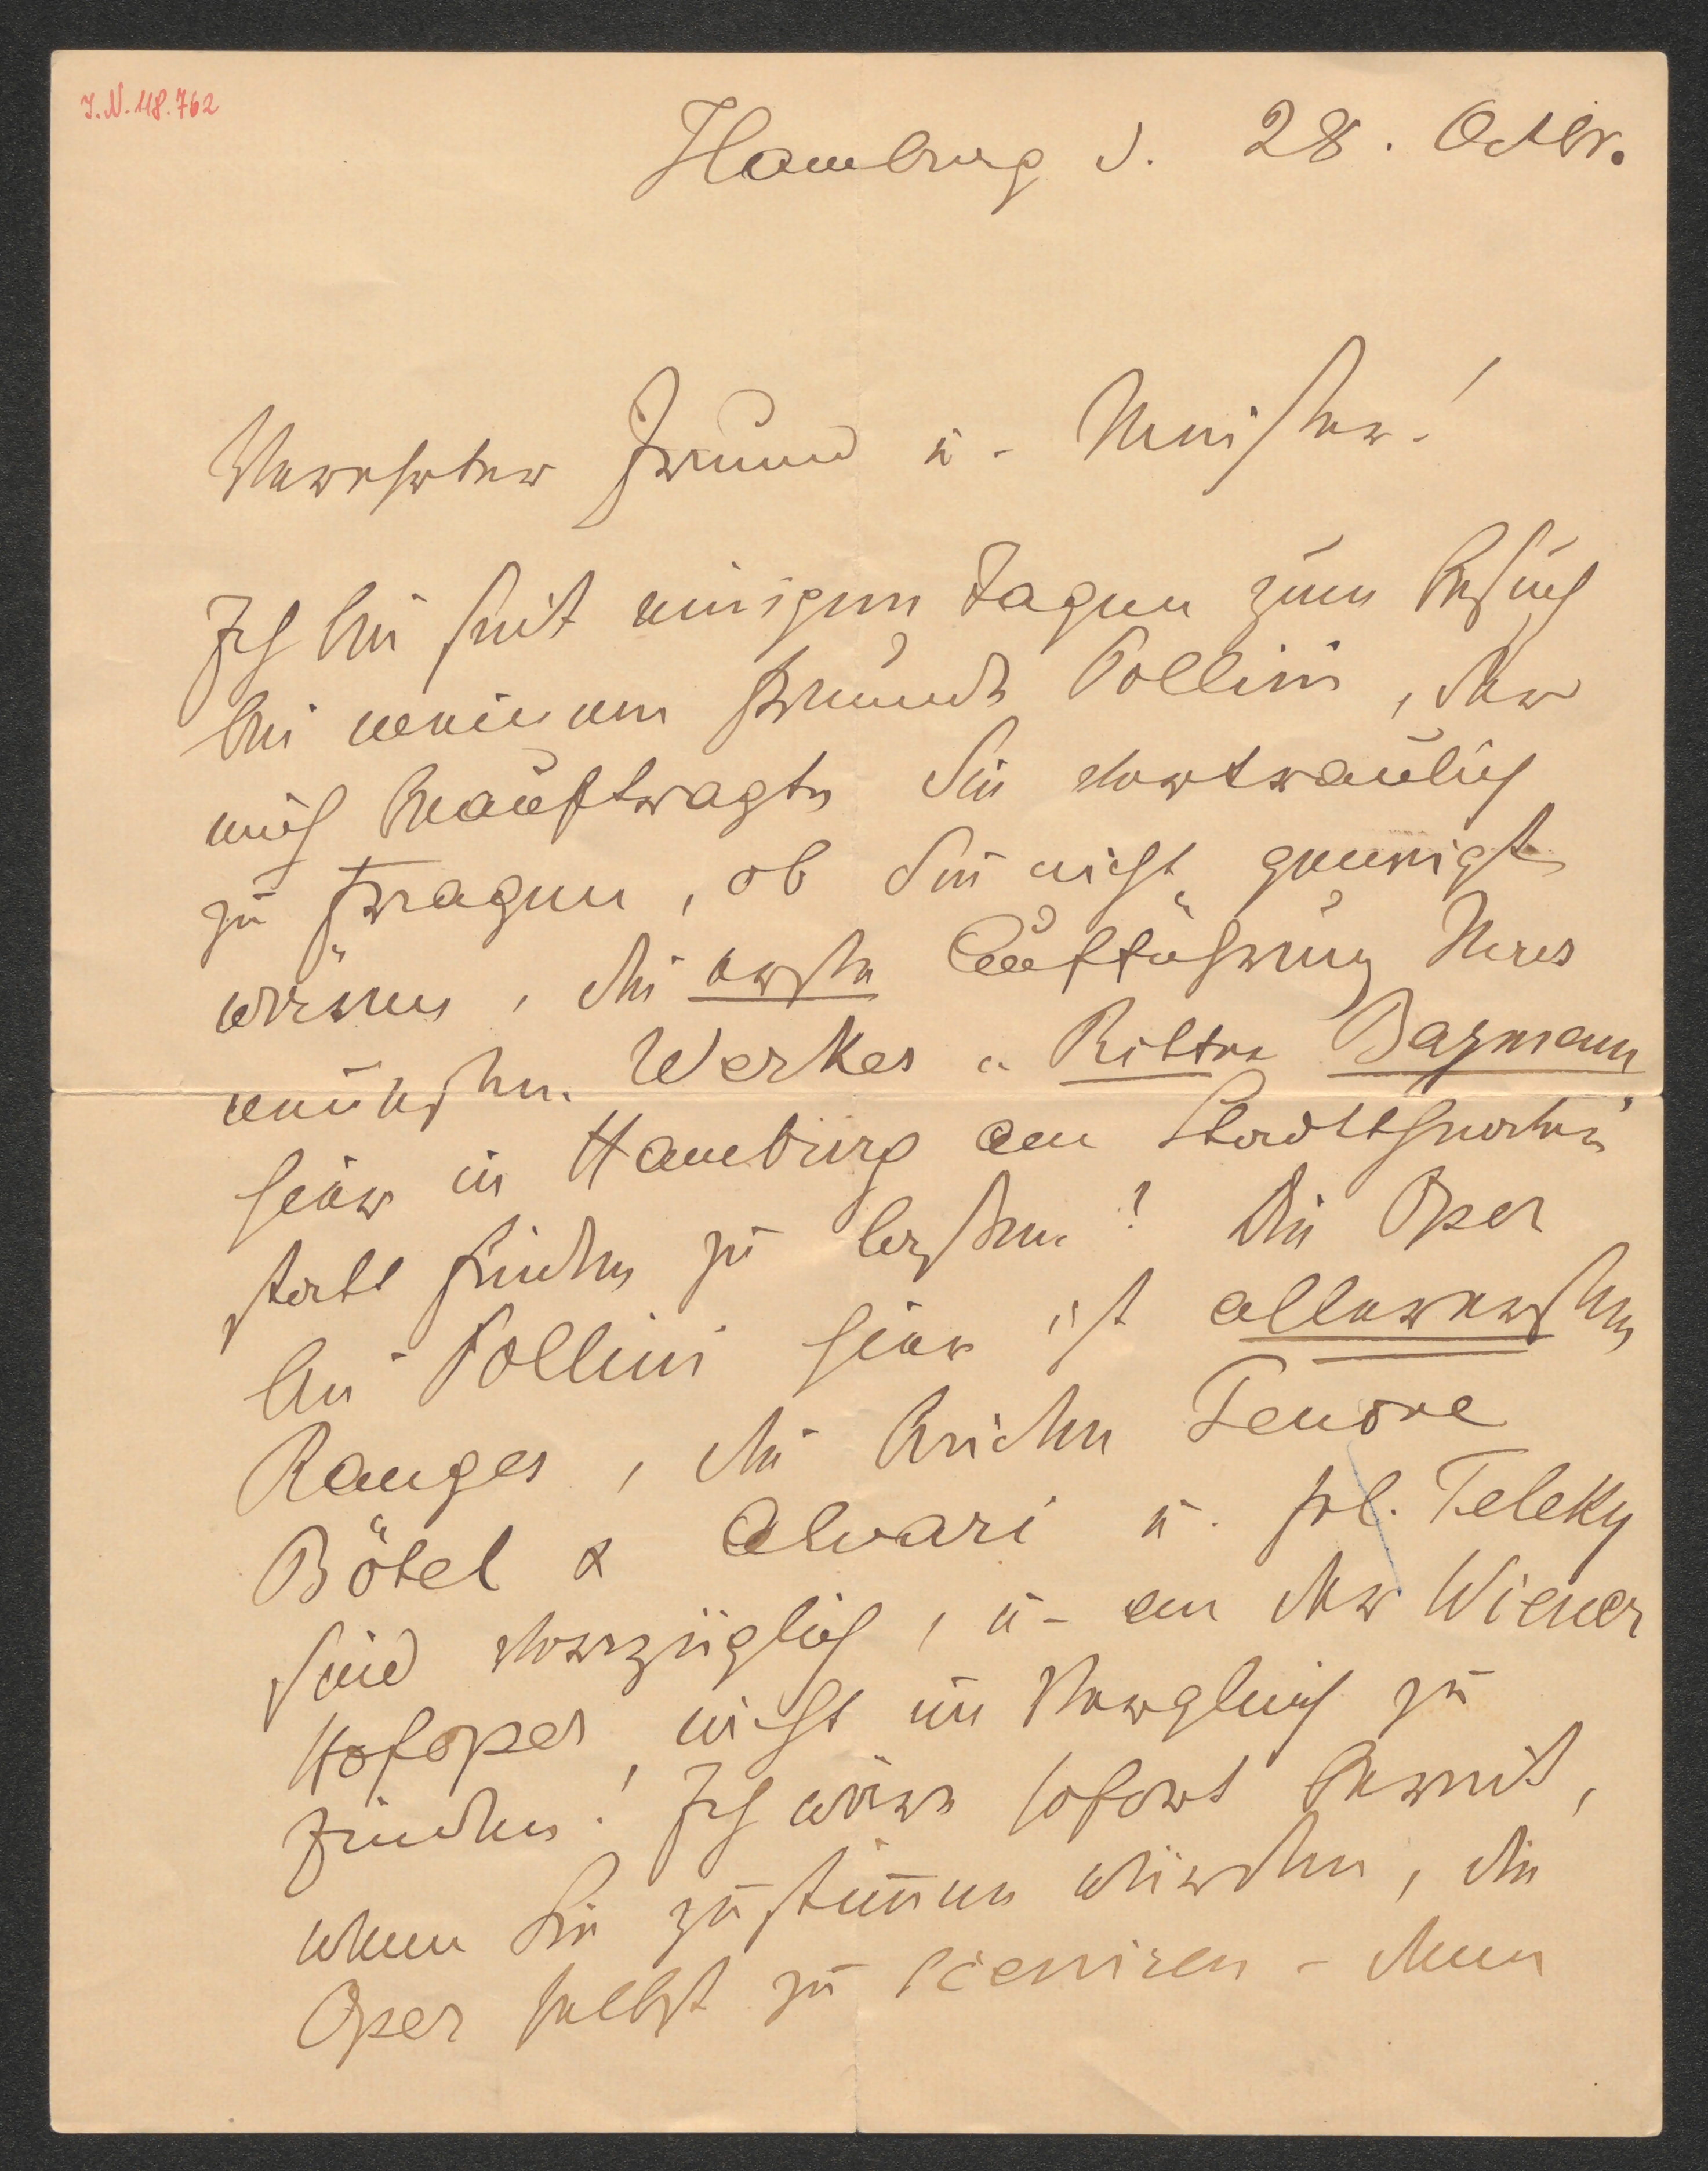 I.N. 118.762
Hamburg d. 28. Octbr.
Verehrter Freund u. Meister!
Ich bin seit einigen Tagen zum Besuch
bei meinem Freunde Pollini, der
mich beauftragte Sie vertraulich
zu fragen, ob Sie nicht geneigt
wären, die erste Aufführung Ihres
neuesten Werkes „Ritter Pazmann
hier in Hamburg am Stadttheater
statt finden zu lassen? Die Oper
bei Pollini hier ist allerersten
Ranges, die beiden Tenöre
Bötel & Alvari u. frl. Teleky
sind vorzüglich, u. an der Wiener
Hofoper, nicht im Vergleich zu
finden! Ich wäre sofort bereit,
wenn Sie zustimen würden, die
Oper selbst zu sceniren - denn